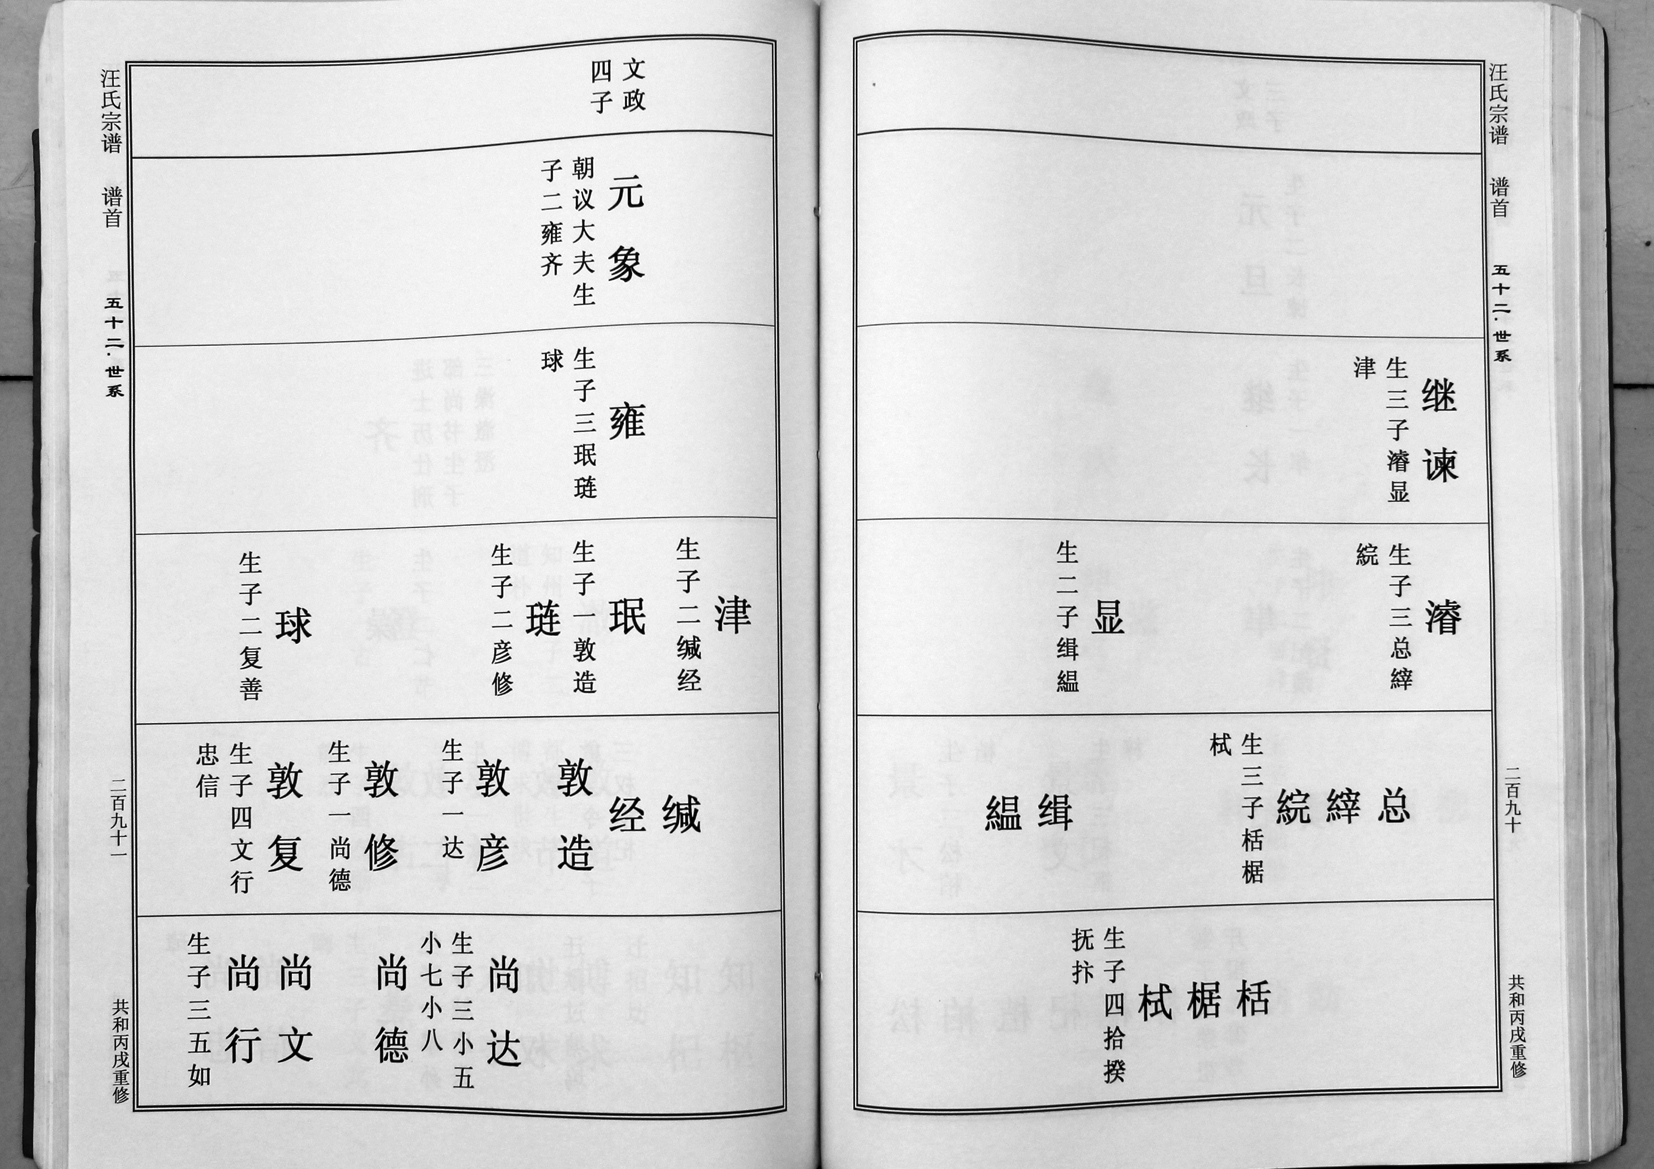 汪氏宗谱 谱首 五十二·世系 二百九十 共和丙戌重修
继谏
生三子濬显
津
濬
生子三总縡
綂
显
生二子缉縕
总
縡
綂
生三子栝椐
栻
缉
縕
栝
椐
栻
生子四拾揆
抚抃
文政
四子
元象
朝议大夫生
子二雍齐
雍
生子三珉琏
球
津
生子二缄经
珉
生子一敦造
琏
生子二彦修
球
生子二复善
缄
经
敦造
敦彦
生子一达
敦修
生子一尚德
敦复
生子四文行
忠信
尚达
生子三小五
小七小八
尚德
尚文
尚行
生子三五如
汪氏宗谱 谱首 五十二·世系 二百九十一 共和丙戌重修